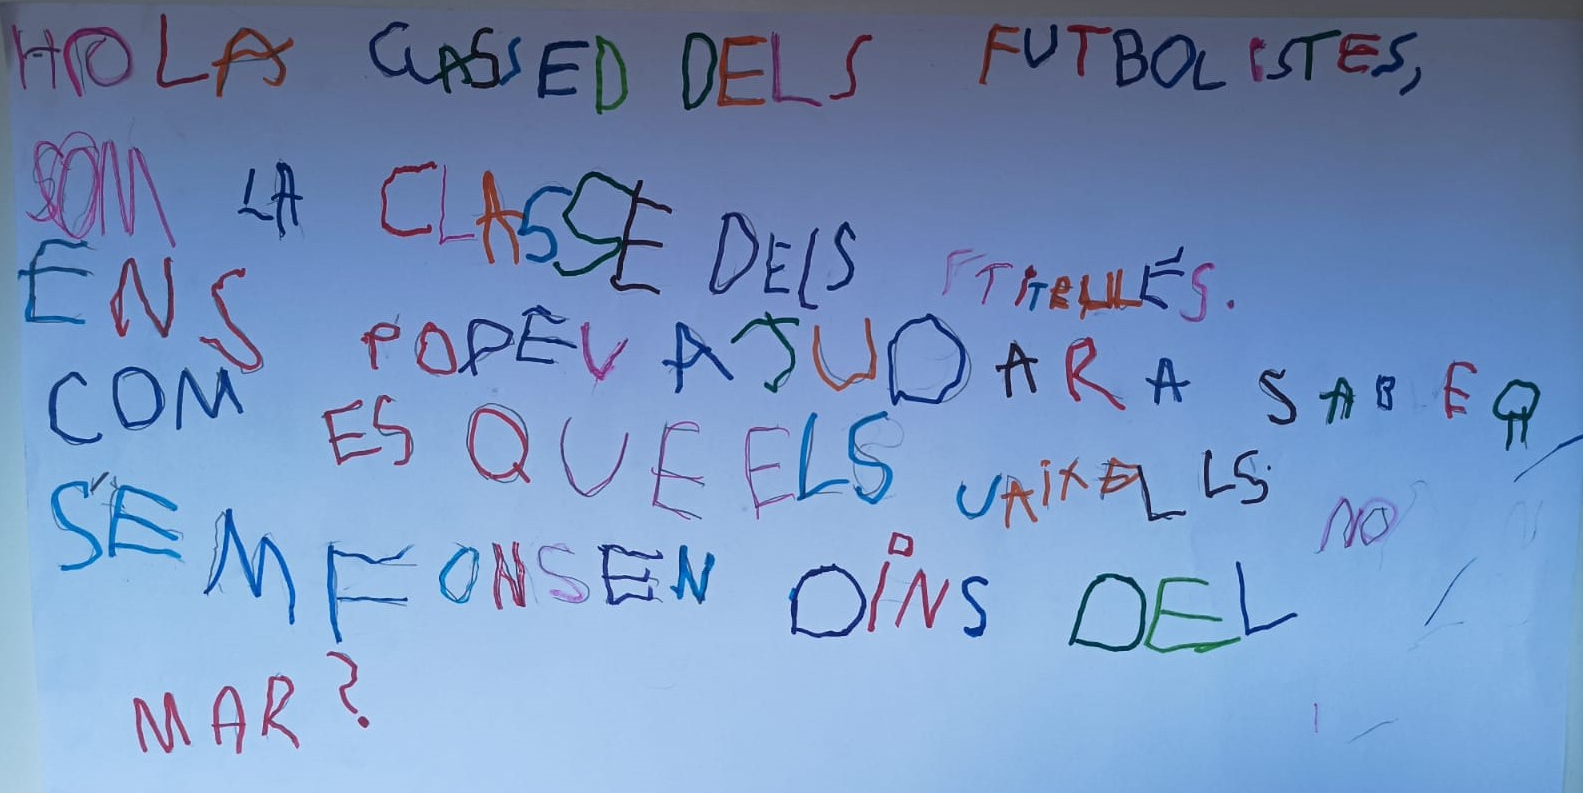 HOLA CLASSED DELS FUTBOLISTES,
SOM LA CLASSE DELS TITELLES.
ENS PODEU AJUDAR A SABER
COM ES QUE ELS VAIXELLS NO
S'EMFONSEN DINS DEL
MAR?